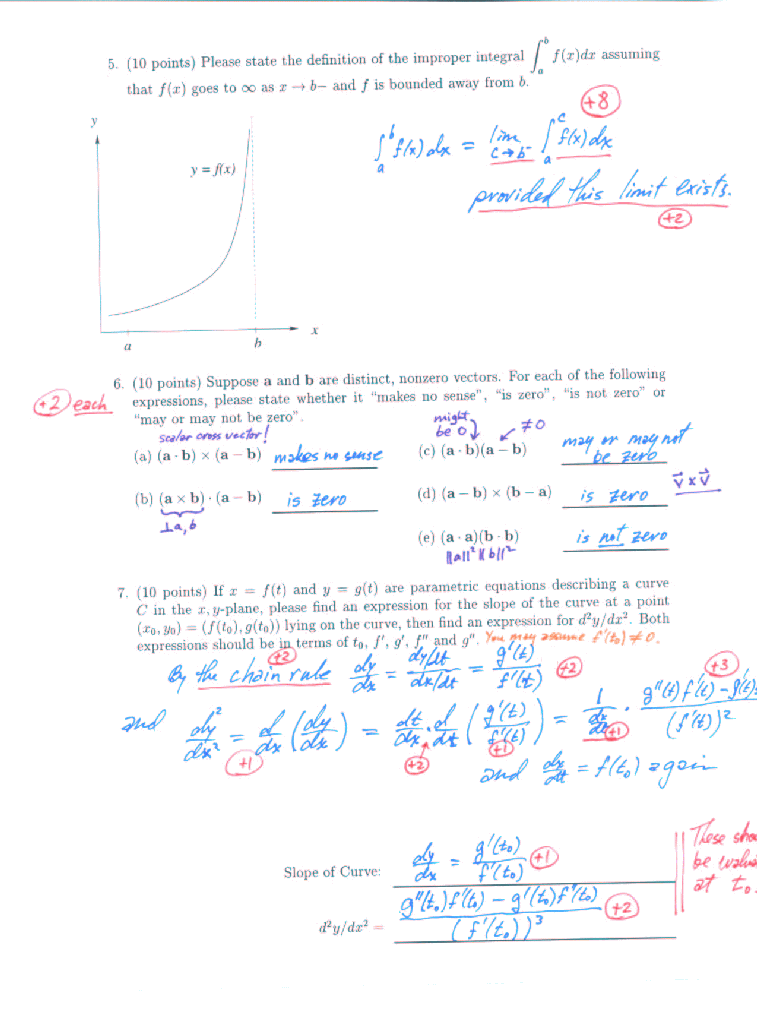 5. (10 points) Please state the definition of the improper integral ∫_a^b f(x)dx assuming
that f(x) goes to ∞ as x → b− and f is bounded away from b.
+8
y
y = f(x)
a
b
x
∫_a^b f(x) dx = lim_{c→b⁻} ∫_a^c f(x) dx
provided this limit exists.
+2
6. (10 points) Suppose a and b are distinct, nonzero vectors. For each of the following
+2 each
expressions, please state whether it "makes no sense", "is zero", "is not zero" or
"may or may not be zero".
scalar cross vector!
(a) (a · b) × (a − b) makes no sense
might be 0
≠0
(c) (a · b)(a − b) may or may not be zero
(b) (a × b) · (a − b) is zero
⊥a,b
(d) (a − b) × (b − a) is zero
v⃗ × v⃗
(e) (a · a)(b · b) is not zero
||a||² ||b||²
7. (10 points) If x = f(t) and y = g(t) are parametric equations describing a curve
C in the x, y-plane, please find an expression for the slope of the curve at a point
(x₀, y₀) = (f(t₀), g(t₀)) lying on the curve, then find an expression for d²y/dx². Both
expressions should be in terms of t₀, f′, g′, f″ and g″. You may assume f′(t₀) ≠ 0.
+2
By the chain rule dy/dx = (dy/dt)/(dx/dt) = g′(t)/f′(t) +2
+3
and dy²/dx² = d/dx (dy/dx) = dt/dx · d/dt (g′(t)/f′(t)) = 1/(dx/dt) · (g″(t)f′(t) − g′(t)/(f′(t))²
+1 +2 +1 +1
and dx/dt = f(t₀) again
Slope of Curve: dy/dx = g′(t₀)/f′(t₀) +1
These sho
be
at t₀.
d²y/dx² = (g″(t₀)f′(t₀) − g′(t₀)f″(t₀))/(f′(t₀))³ +2